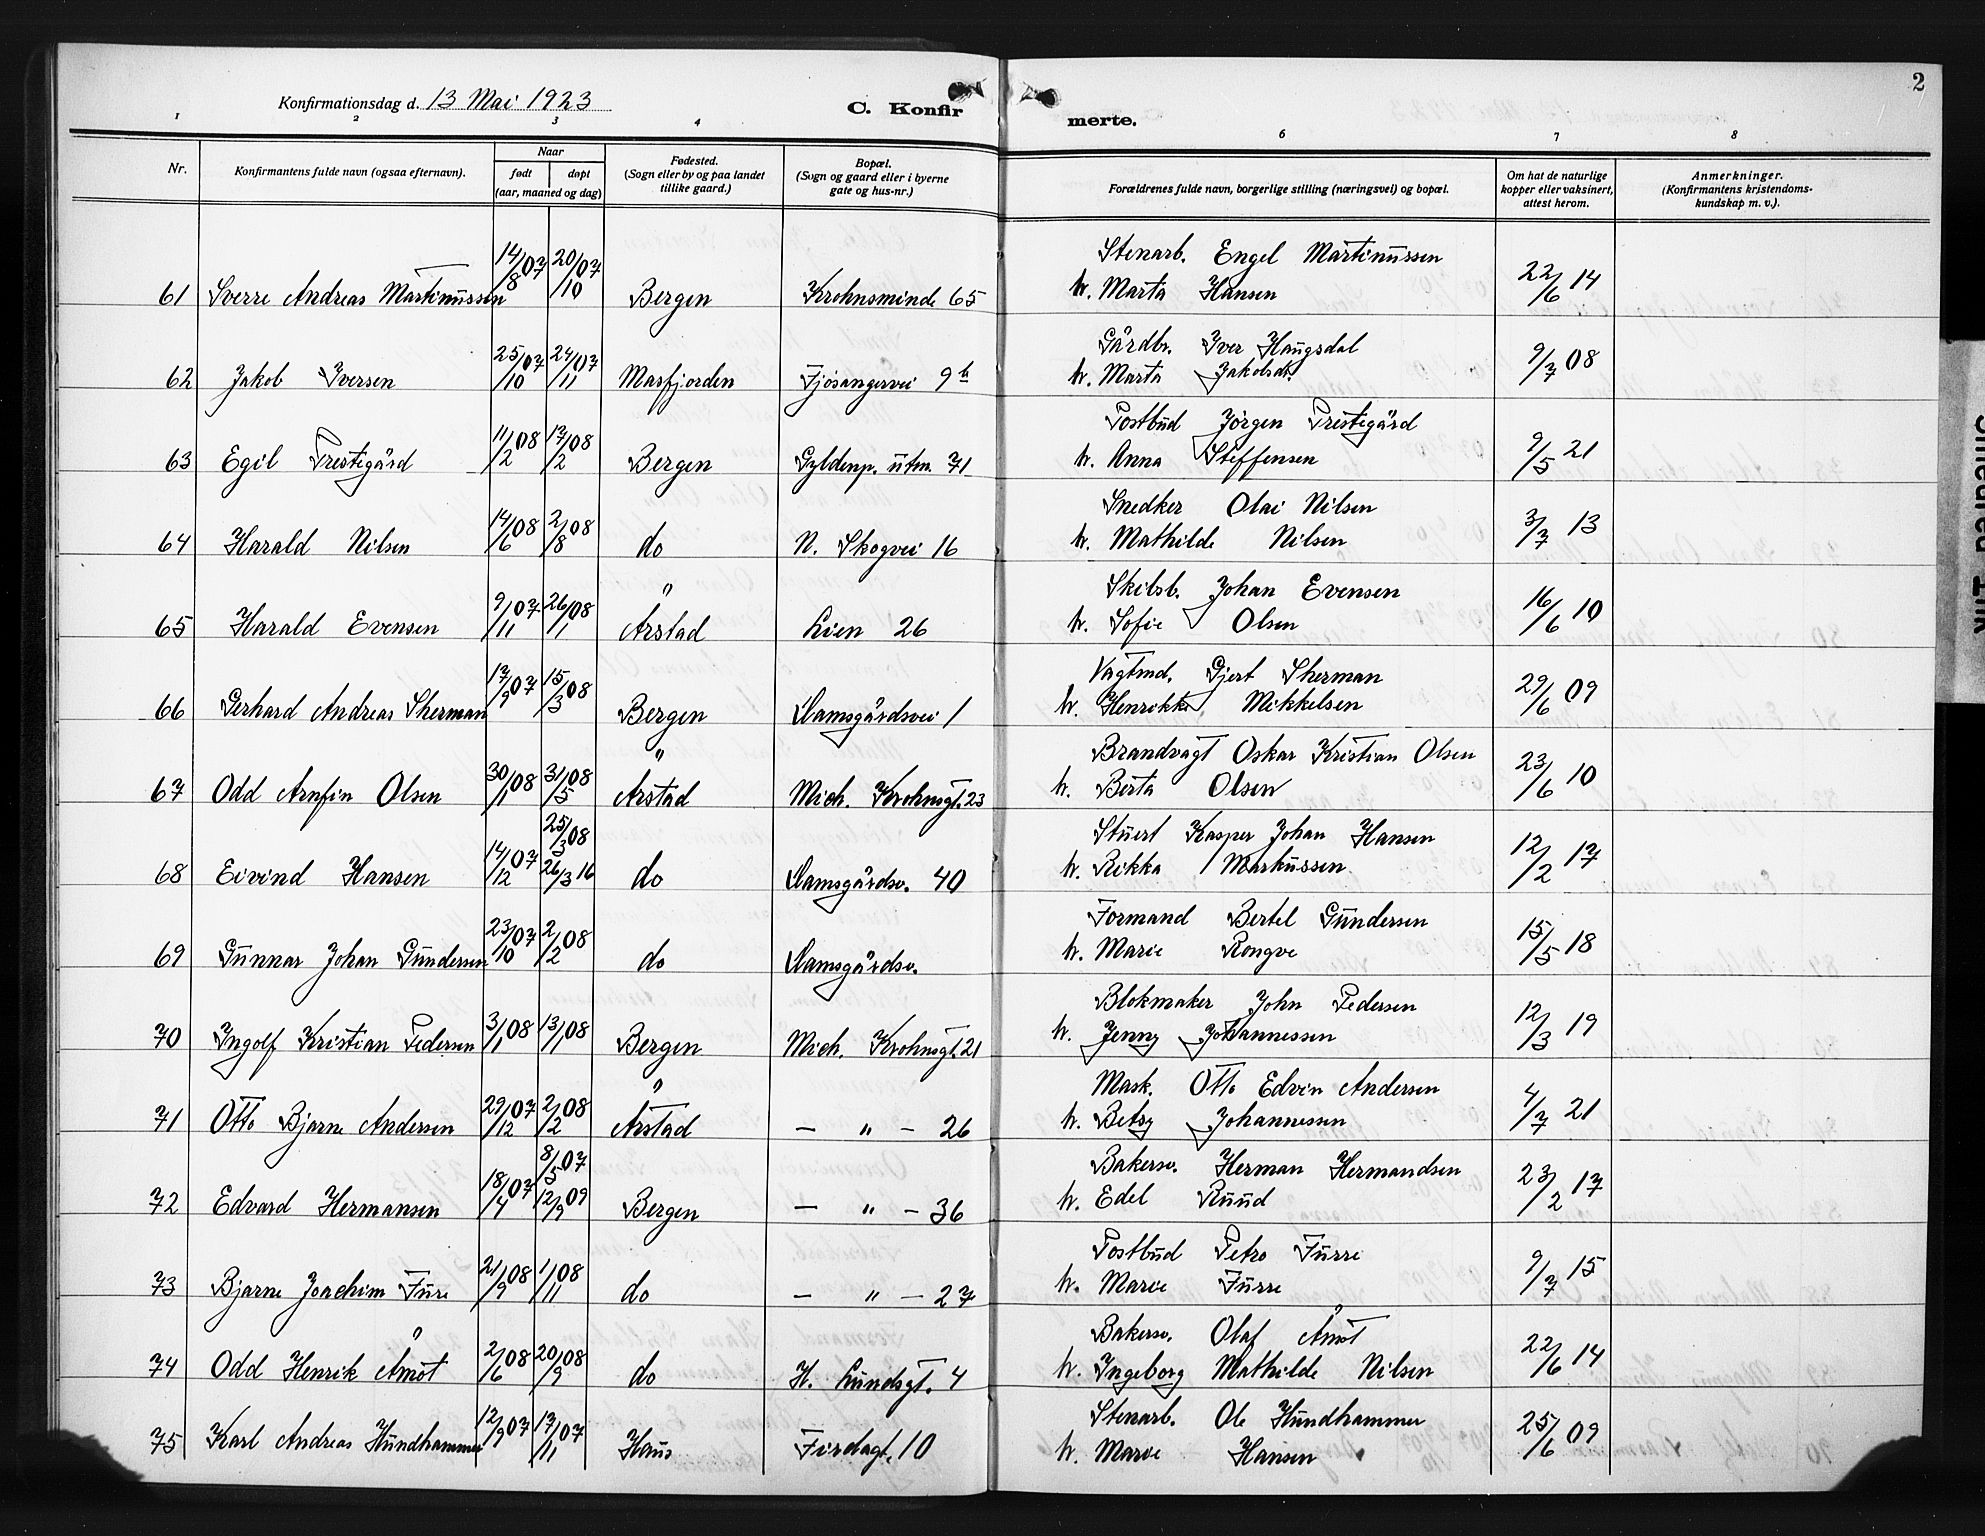 2
Konfirmationsdag d. 13 Mai 1923
C. Konfirmerte.
1 2 3 4 5 6 7 8
Nr. | Konfirmantens fulde navn (ogsaa efternavn). | Naar født døpt (aar, maaned og dag) | Fødested. (Sogn eller by og paa landet tillike gaard.) | Bopæl. (Sogn og gaard eller i byerne gate og hus-nr.) | Forældrenes fulde navn, borgerlige stilling (næringsvei) og bopæl. | Om hat de naturlige kopper eller vaksinert, attest herom. | Anmerkninger. (Konfirmantens kristendoms-kundskap m. v.).
Stenarb. Engel Martinussen
61 Sverre Andreas Martinussen 14/8 07 20/10 07 Bergen Krohnsminde 65 h. Marta Hansen 22/6 14
Gårdbr. Iver Haugsdal
62 Jakob Iversen 25/10 07 24/11 07 Masfjorden Fjøsangervei 9b h. Marta Jakobsdt. 9/7 08
Postbud Jörgen Prestegård
63 Egil Prestegård 11/2 08 17/2 08 Bergen Gyldenp. utm. 71 h. Anna Steffensen 9/5 21
Snedker Olai Nilsen
64 Harald Nilsen 14/6 08 2/8 08 do N. Skogvei 16 h. Mathilde Nilsen 3/7 13
Skibsb. Johan Evensen
65 Harald Evensen 9/11 07 26/1 08 Årstad Lien 26 h. Sofie Olsen 16/6 10
Vagtmd. Gjert Sherman
66 Gerhard Andreas Sherman 17/9 07 15/3 08 Bergen Damsgårdsvei 1 h. Henrikke Mikkelsen 29/6 09
Brandvagt Oskar Kristian Olsen
67 Odd Arnfin Olsen 30/1 08 31/5 08 Årstad Mich. Krohnsgt. 23 h. Berta Olsen 23/6 10
Stuert Kasper Johan Hansen
68 Eivind Hansen 14/12 07 25/3 08 26/3 16 do Damsgårdsv. 40 h. Rikka Markussen 12/2 17
Formand Bertel Gundersen
69 Gunnar Johan Gundersen 23/10 07 2/2 08 do Damsgårdsv. h. Marie Rongve 15/5 18
Blokmaker John Pedersen
70 Ingolf Kristian Pedersen 3/1 08 13/1 08 Bergen Mich. Krohnsgt. 21 h. Jenny Johannessen 12/3 19
Mask. Otto Edvin Andersen
71 Otto Bjarne Andersen 29/12 07 2/2 08 Årstad — " — 26 h. Betsy Johannessen 4/7 21
Bakersv. Herman Hermandsen
72 Edvard Hermansen 18/4 07 8/5 07 12/9 09 Bergen — " — 36 h. Edel Ruud 23/2 17
Postbud Petro Furre
73 Bjarne Joachim Fure 21/9 08 1/11 08 do — " — 27 h. Marie Furre 9/7 15
Bakersv. Olaf Åmot
74 Odd Henrik Åmot 2/6 08 20/9 08 do H. Lundsgt. 4 h. Ingeborg Mathilde Nilsen 22/6 14
Stenarb. Ole Hundhammer
75 Karl Andreas Hundhammer 12/9 07 17/11 07 Haus Firdagt. 10 h. Marie Hansen 25/6 09